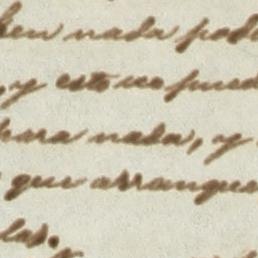 ben nada pod
, y esto no pued
para nada, y
que arranque
las.